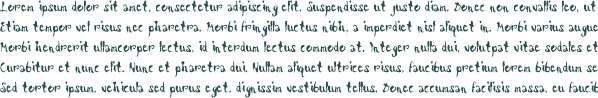 Lorem ipsum dolor sit amet, consectetur adipiscing elit. Suspendisse ut justo diam. Donec non convallis leo, ut
Etiam tempor vel risus nec pharetra. Morbi fringilla luctus nibh, a imperdiet nisl aliquet in. Morbi varius augue
Morbi hendrerit ullamcorper lectus, id interdum lectus commodo at. Integer nulla dui, volutpat vitae sodales et
Curabitur et nunc elit. Nunc et pharetra dui. Nullam aliquet ultrices risus, faucibus pretium lorem bibendum se
Sed tortor ipsum, vehicula sed purus eget, dignissim vestibulum tellus. Donec accumsan facilisis massa, eu faucib